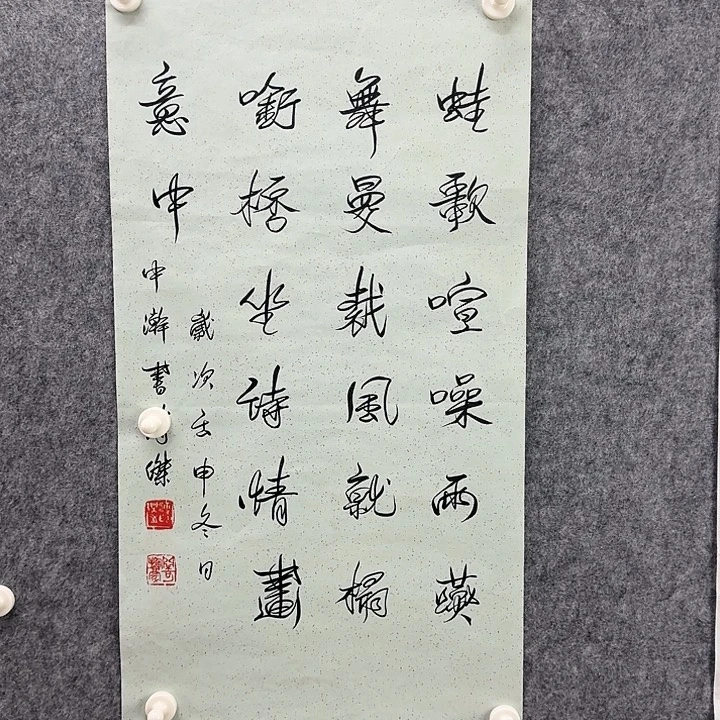 蛙歌喧噪雨
舞曼裁風就榻
桮坐詩情畫
意中
歲次壬申冬日
中瀚書 傑